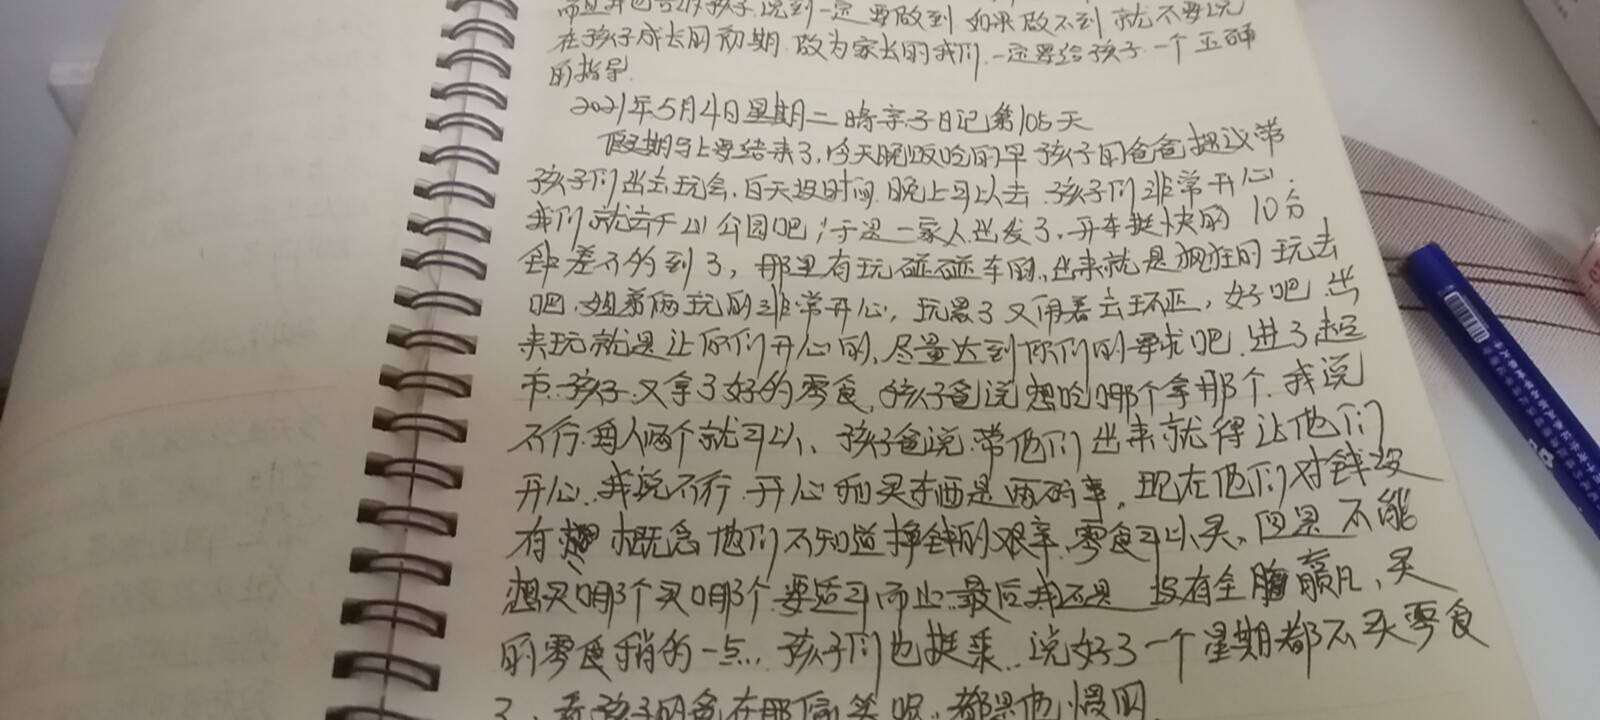 说到一定要做到 如果做不到 就不要说
在孩子成长的初期 做为家长的我们 一定要给孩子一个正确
的指导.
2021年5月4日星期二 晴 亲子日记第105天
假期马上要结束了,今天晚饭吃的早 孩子的爸爸提议带
孩子们出去玩会,白天没时间 晚上可以去 孩子们非常开心.
我们就去千山公园吧,于是一家人出发了,开车挺快的 10分
钟差不多到了,那里有玩碰碰车的,出来就是疯狂的玩去
吧,姐弟俩玩的非常开心,玩累了又闹着去环亚,好吧 出
来玩就是让你们开心的,尽量达到你们的要求吧,进了超
市 孩子又拿了好多零食,孩子爸说想吃哪个拿那个 我说
不行 每人两个就可以,孩子爸说 带他们出来就得让他们
开心,我说不行 开心和买东西是两码事,现在他们对钱没
有 概念 他们不知道挣钱的艰辛,零食可以买,但是不能
想买哪个买哪个 要适可而止,最后我还是 没有全胸赢凡,买
的零食稍多一点,孩子们也挺乖,说好了一个星期都不买零食
了,看孩子的爸在那偷笑呢,都是他惯的